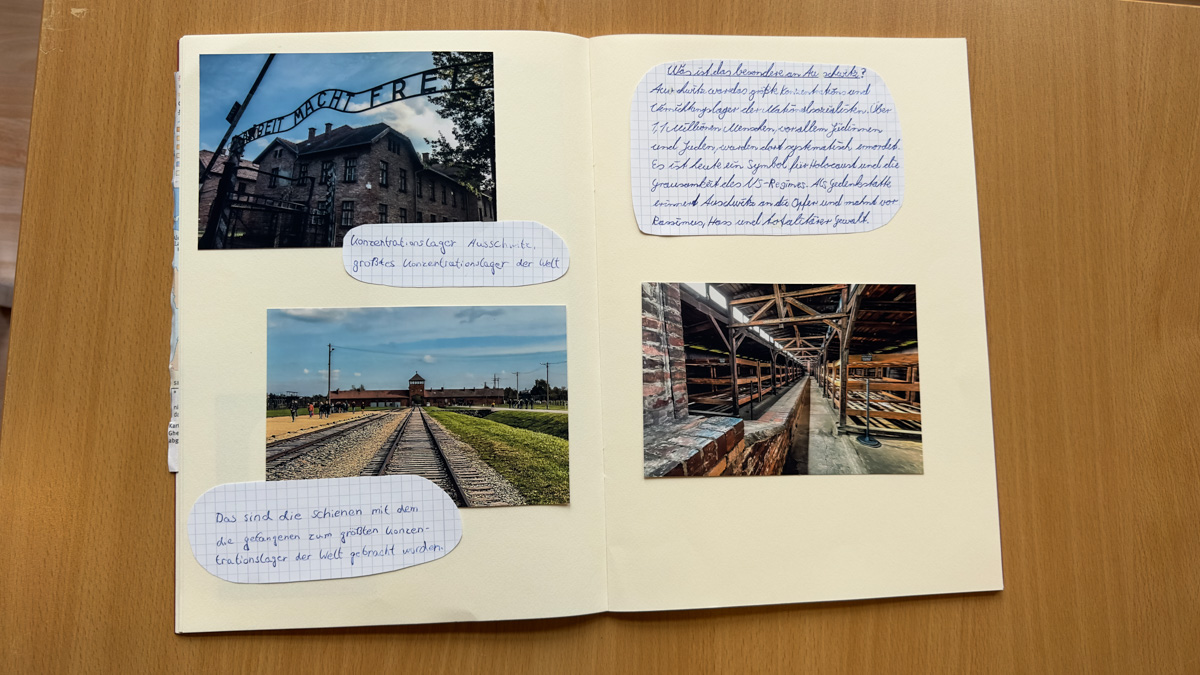 ARBEIT MACHT FREI
Konzentrationslager Ausschwitz,
größtes Konzentrationslager der Welt
Das sind die schienen mit dem
die gefangenen zum größten Konzen-
trationslager der Welt gebracht wurden.
Was ist das besondere an Au schwitz?
Auschwitz war das größte Konzentrations und
Vernichtungslager der Nationalsozialisten. Über
1,1 Millionen Menschen, vor allem Jüdinnen
und Juden, wurden dort systematisch ermordet.
Es ist heute ein Symbol für Holocaust und die
grausamkeit des NS-Regimes. Als Gedenkstätte
erinnert Auschwitz an die Opfer und mahnt vor
Rassimus, Hass und totalitärer Gewalt.